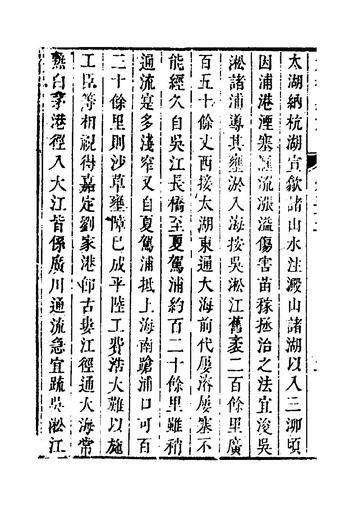 太湖納杭湖宣歙諸山水注澱山諸湖以入三泖頃
因浦港湮塞匯流漲溢傷害苗稼拯治之法宜浚吳
淞諸浦導其壅淤入海按吳淞江舊袤二百餘里廣
百五十餘丈西接太湖東通大海前代屢浚屢塞不
能經久自吳江長橋至夏駕浦約百二十餘里雖稍
通流寔多淺窄又自夏駕浦抵上海南蹌浦口可百
二十餘里則沙草壅障已成平陸工費浩大難以施
工臣等相視得嘉定劉家港即古婁江徑通大海常
熟白茅港徑入大江皆係廣川通流急宜疏吳淞江